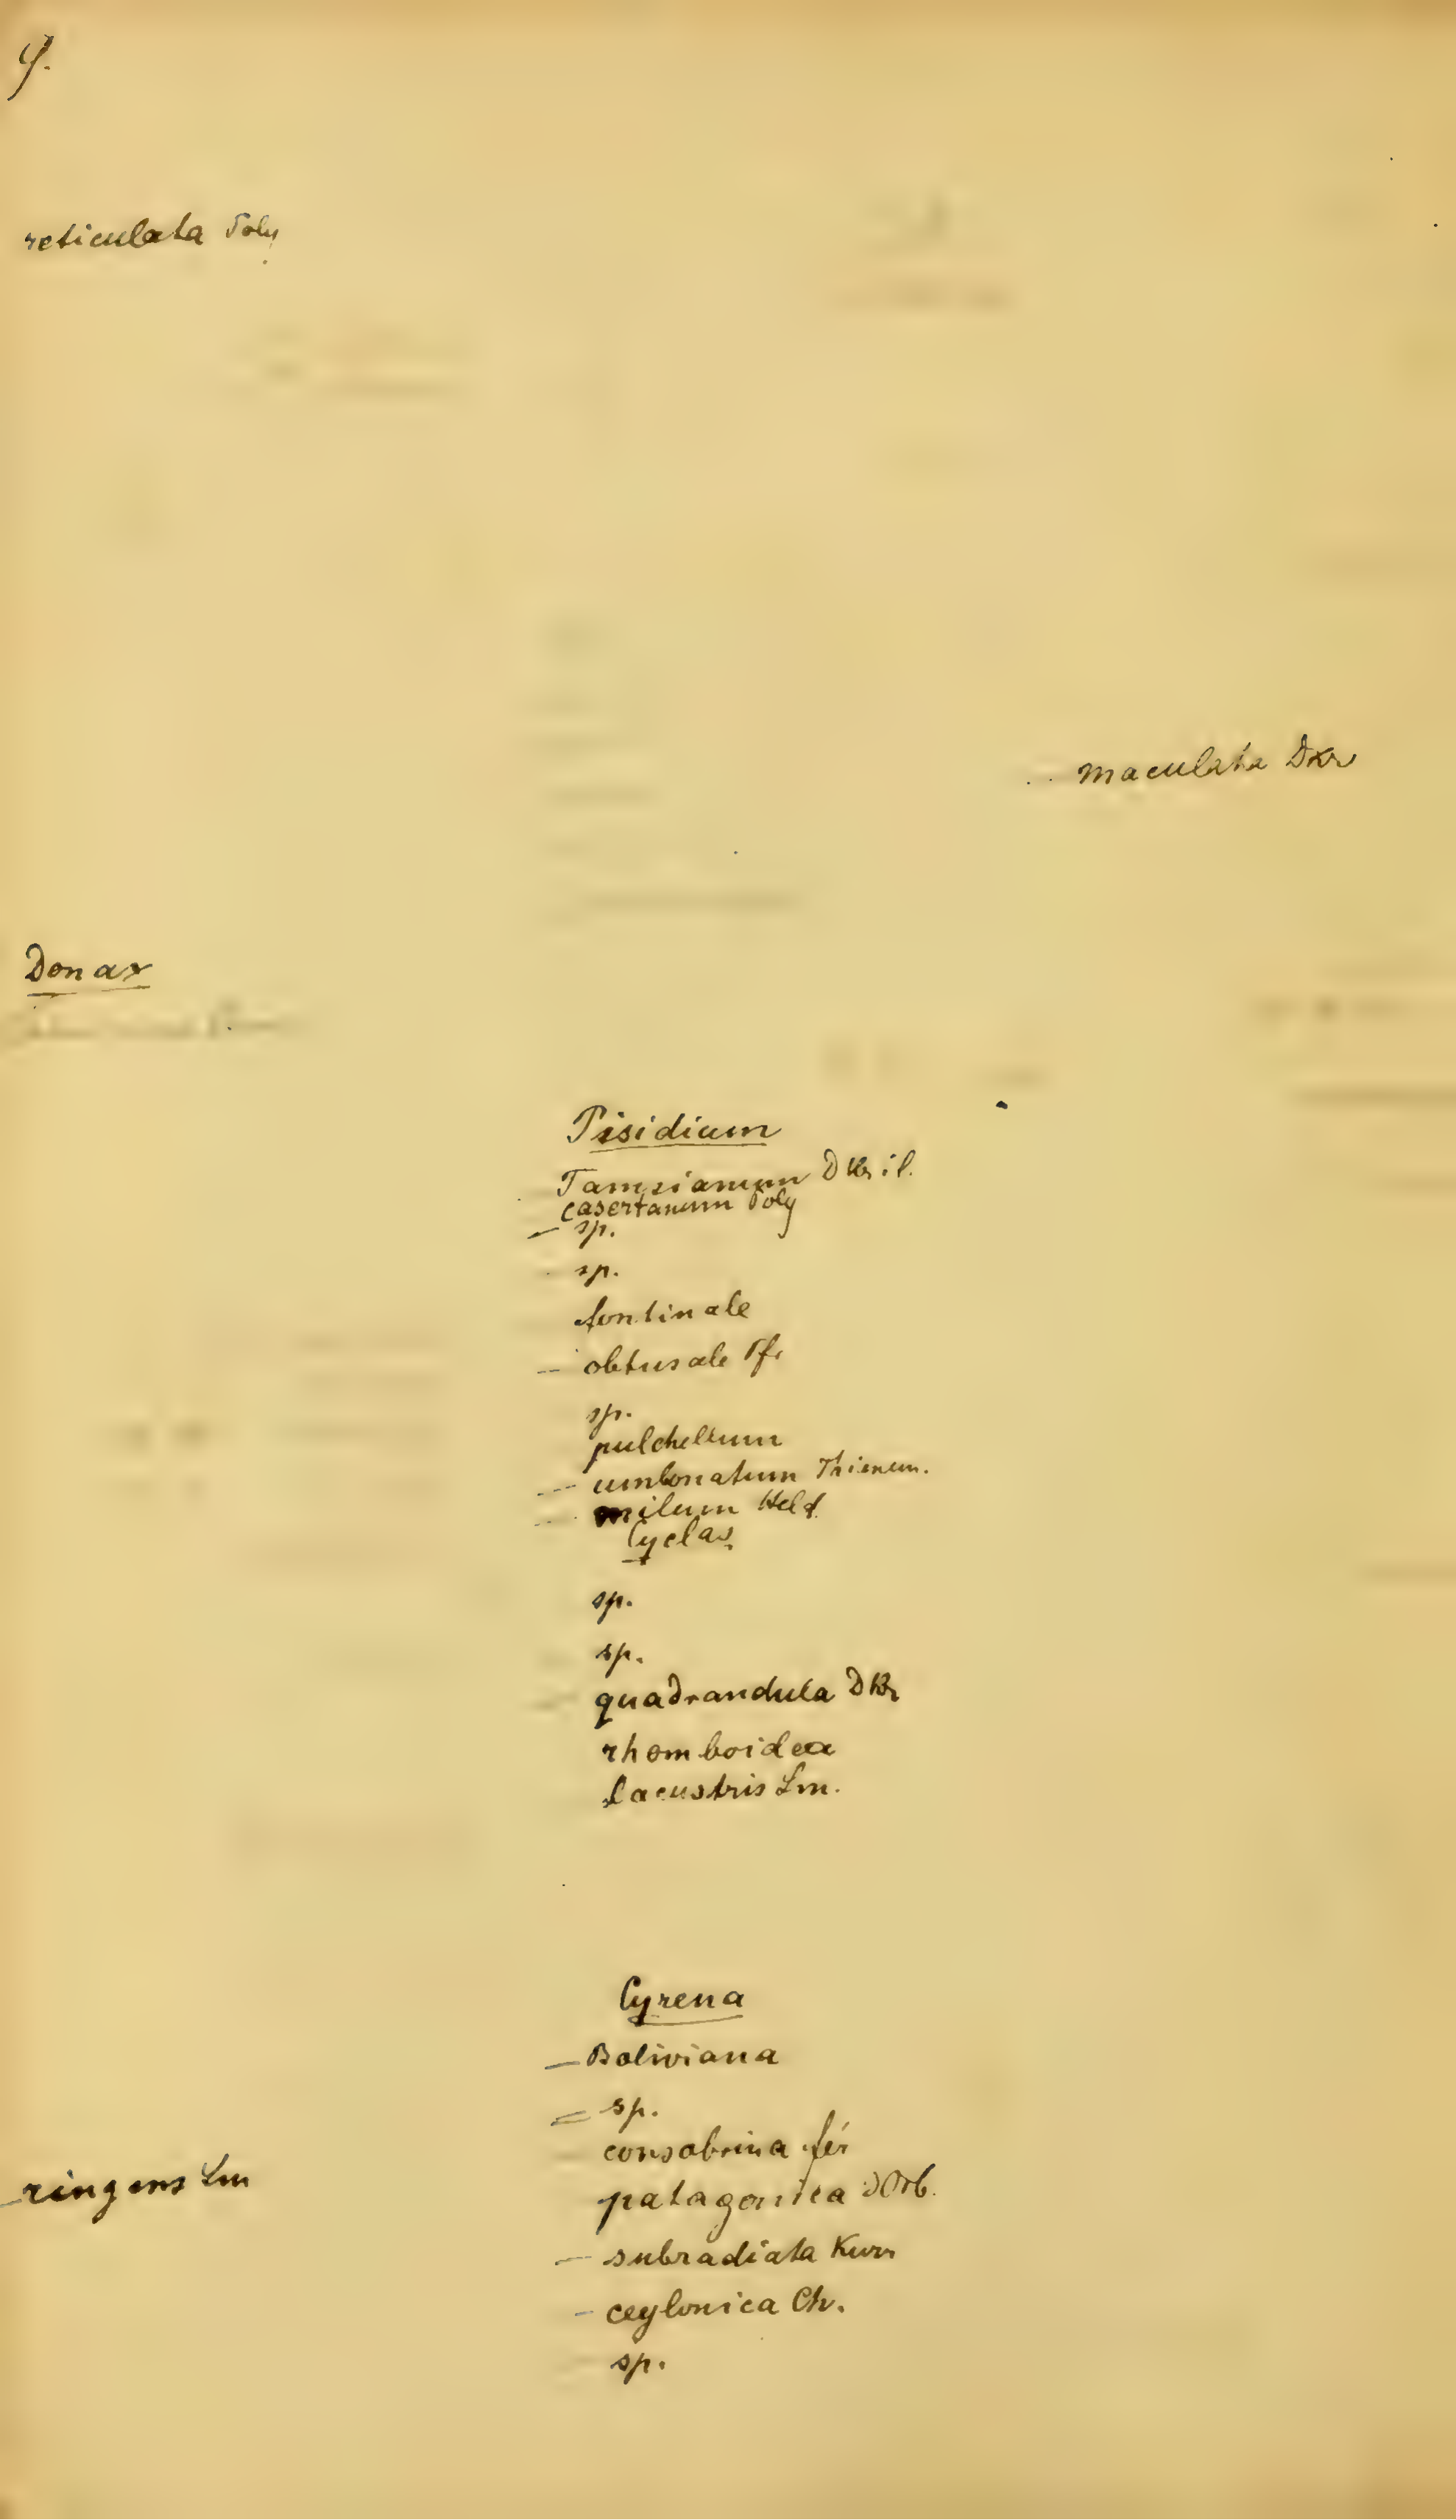 9.
reticulata Poly
maculata Dkr
Donax
Pisidium
Tamsianum Dkr il.
casertanum Poly
— sp.
sp.
fontinale
— obtusale Pf.
sp.
pulchellum
— umbonatum Thienem.
milum Held
Cyclas
sp.
sp.
quadrandula Dkr
rhomboidea
lacustris Lm.
Cyrena
— Boliviana
= sp.
consobrina fér
patagonica dOrb.
ringens Lm
— subradiata Kurr
- ceylonica Ch.
sp.